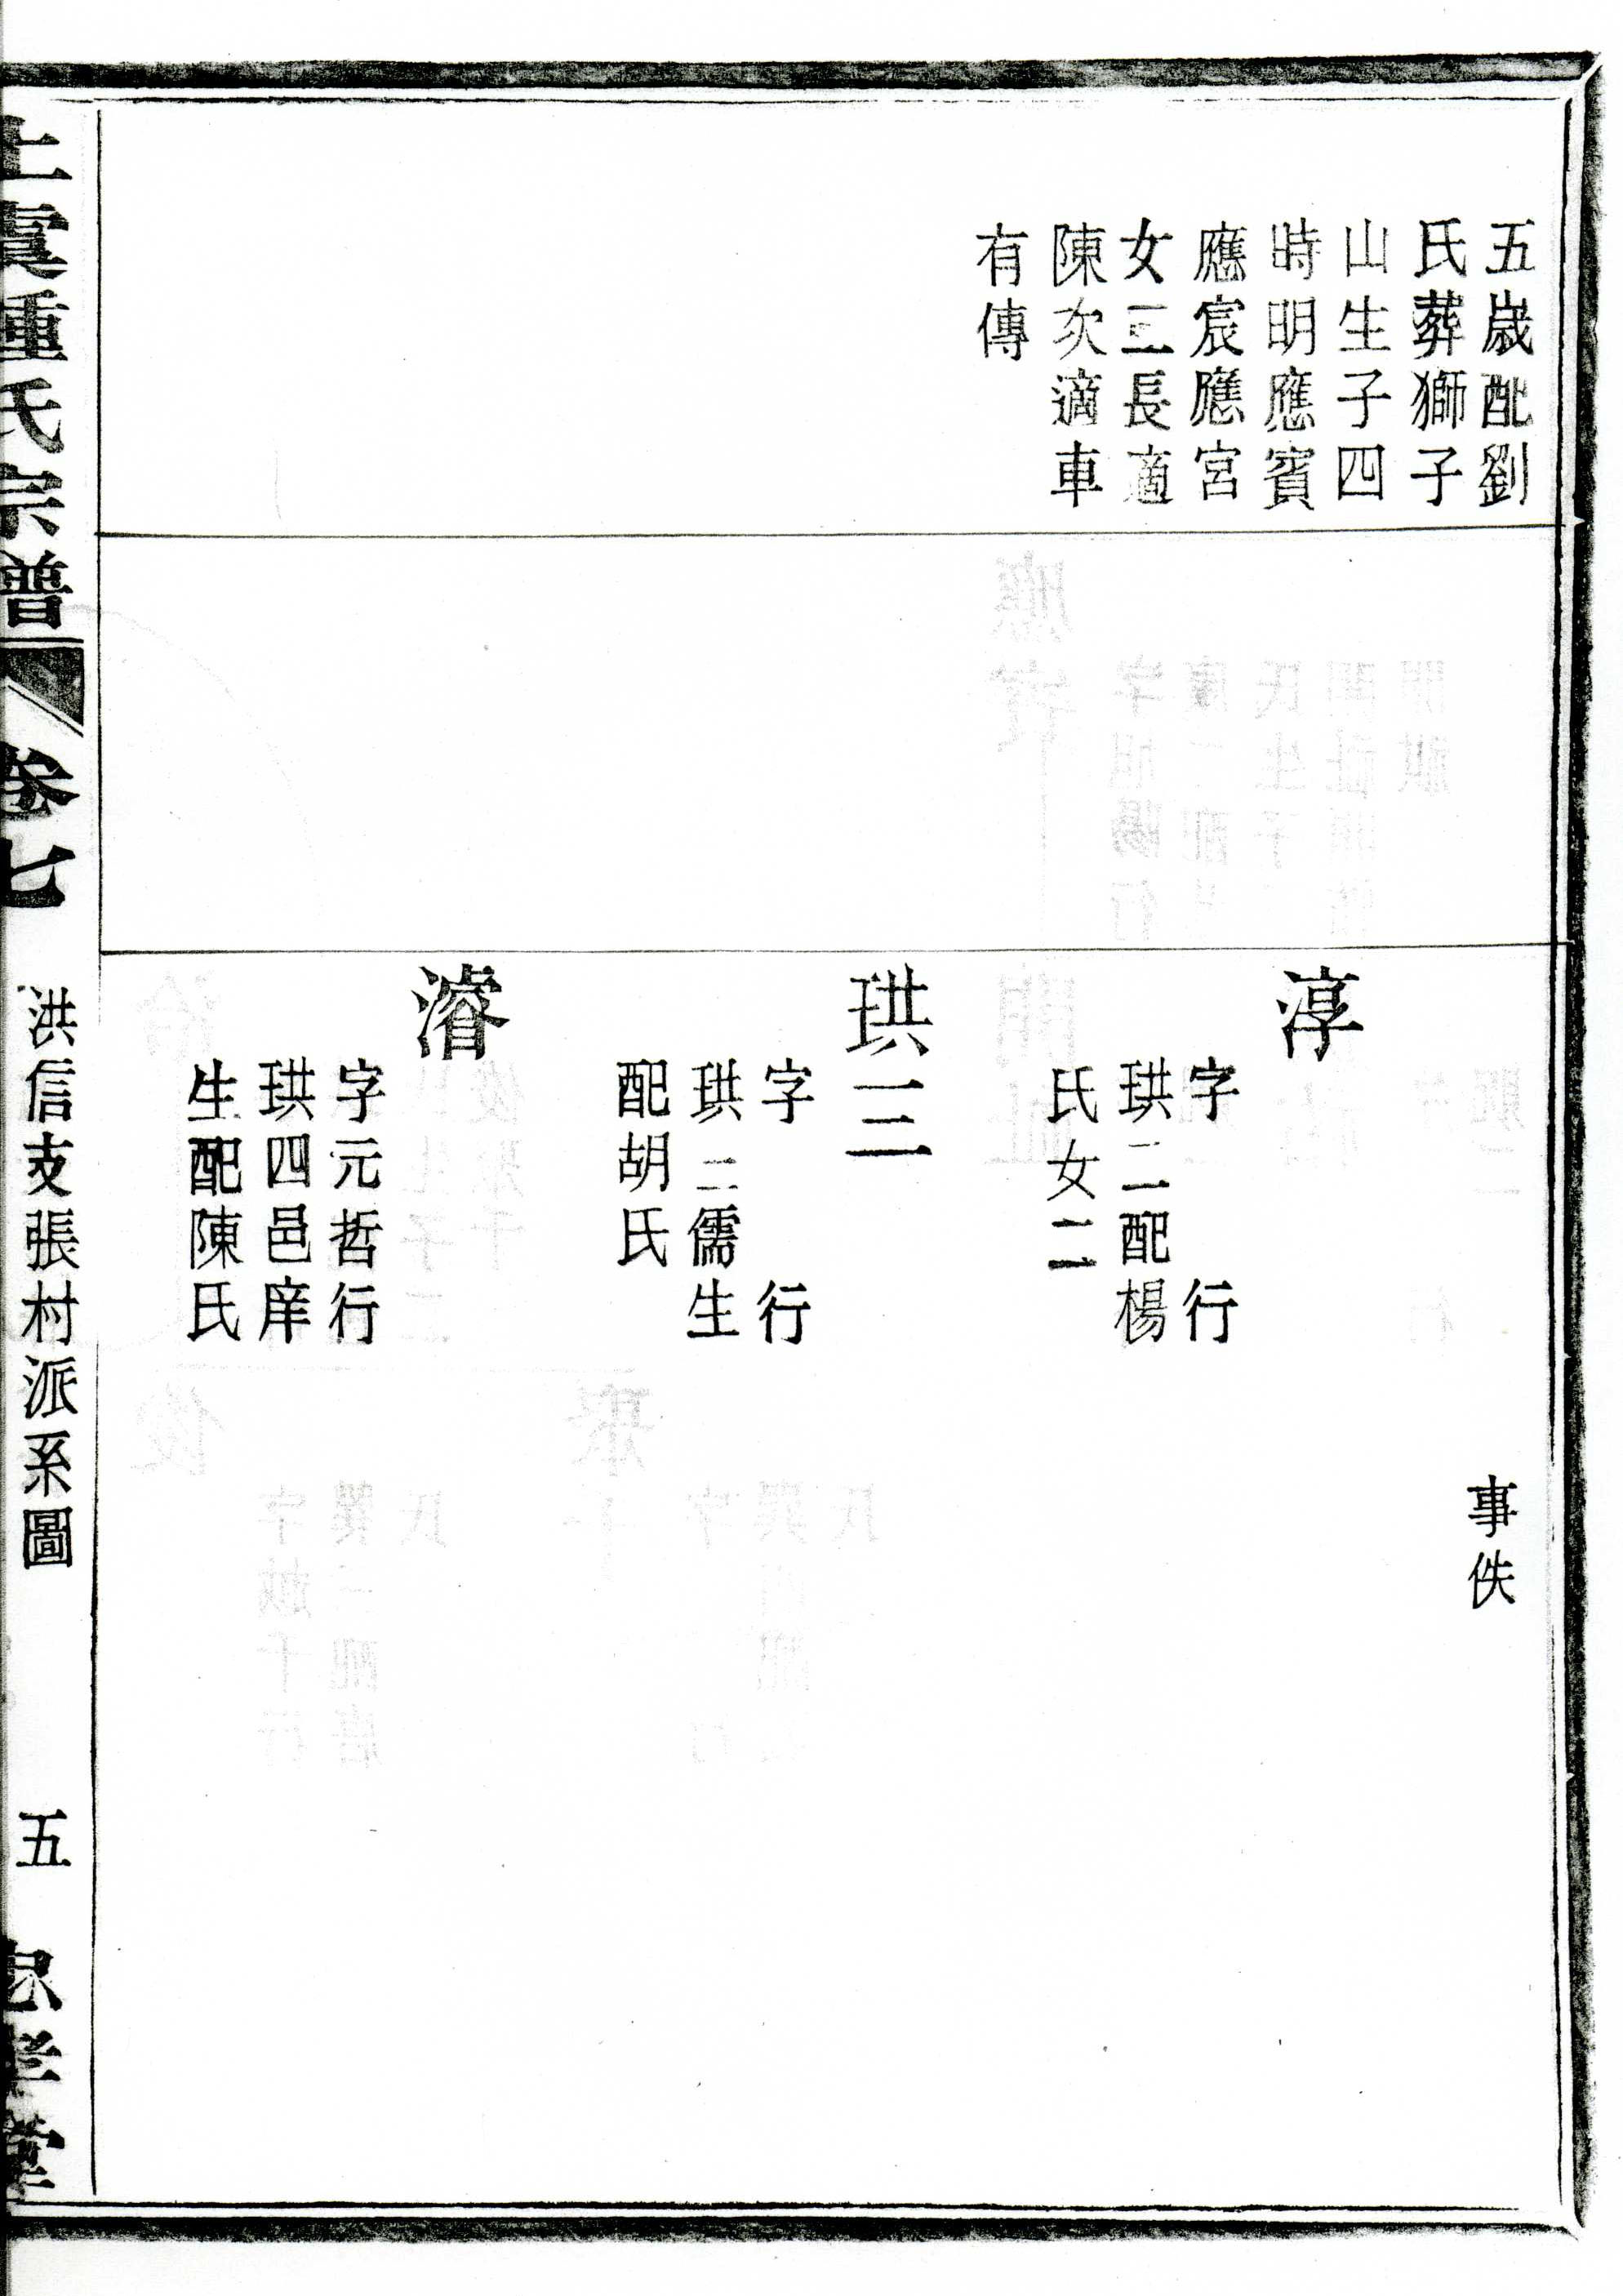 五歲配劉
氏葬獅子
山生子四
時明應賓
應宸應宮
女二長適
陳次適車
有傳
事佚
淳
字　行
珙二配楊
氏女二
珙三
字　行
珙三儒生
配胡氏
濬
字元哲行
珙四邑庠
生配陳氏
上虞鍾氏宗譜
卷七
洪信支張村派系圖
五
忠孝堂